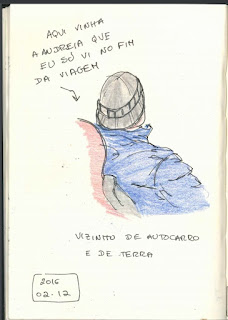 AQUI VINHA
A ANDREIA QUE
EU SÓ VI NO FIM
DA VIAGEM
VIZINHO DE AUTOCARRO
E DE TERRA
2016
02.12